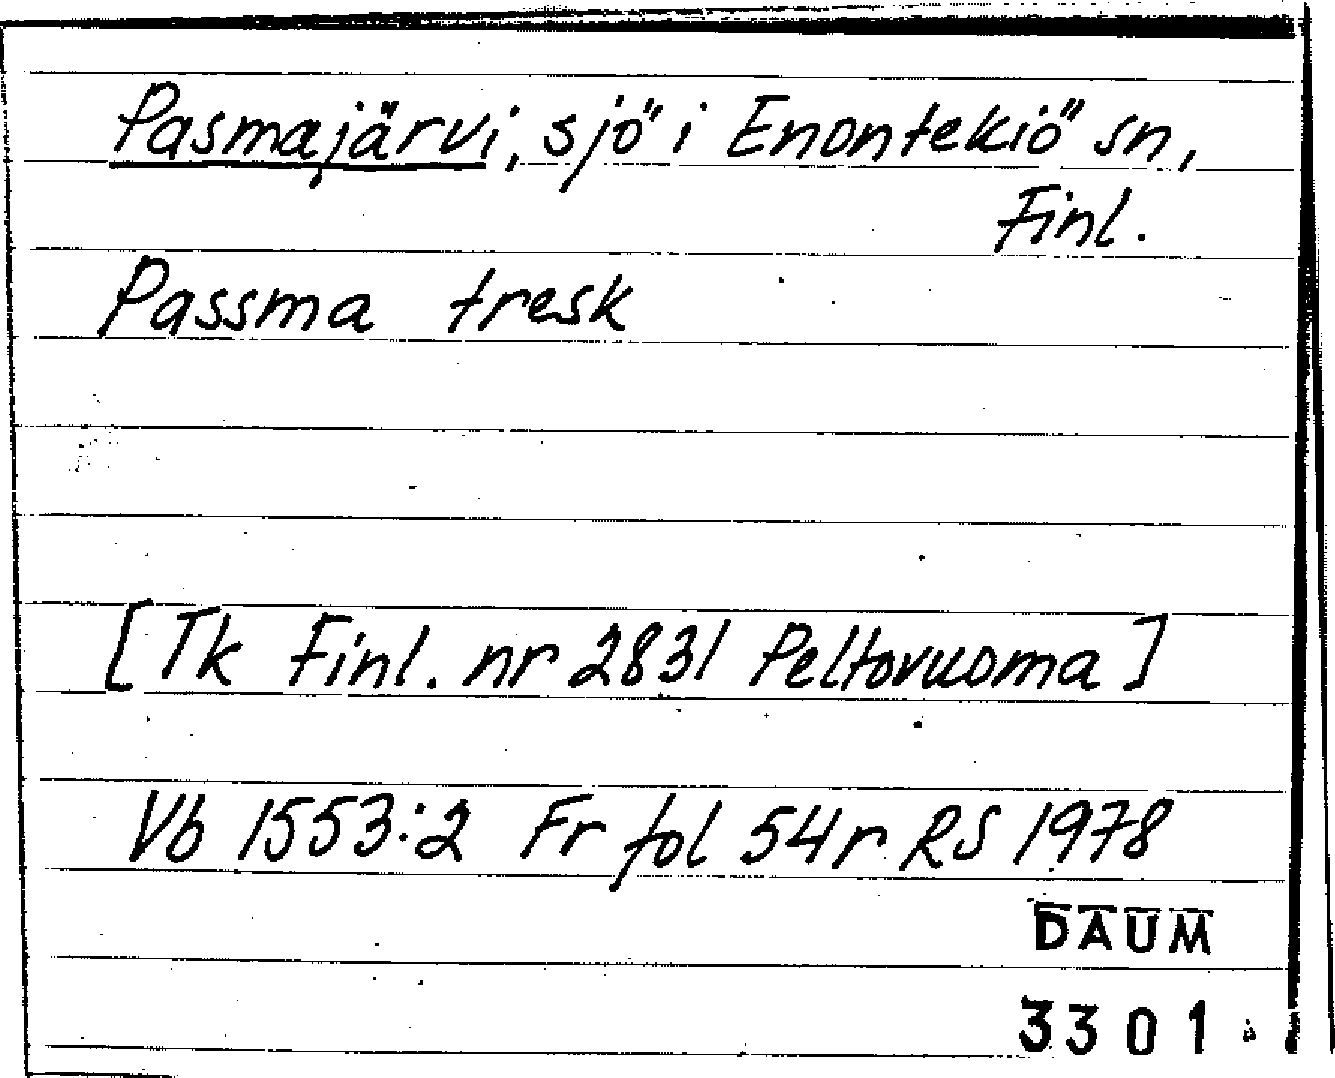 Pasmajärvi, sjö i Enontekiö sn,
Finl.
Passma tresk
[Tk Finl. nr 2831 Peltovuoma]
Vb 1553:2 Fr fol 54r RS 1978
DAUM
3301